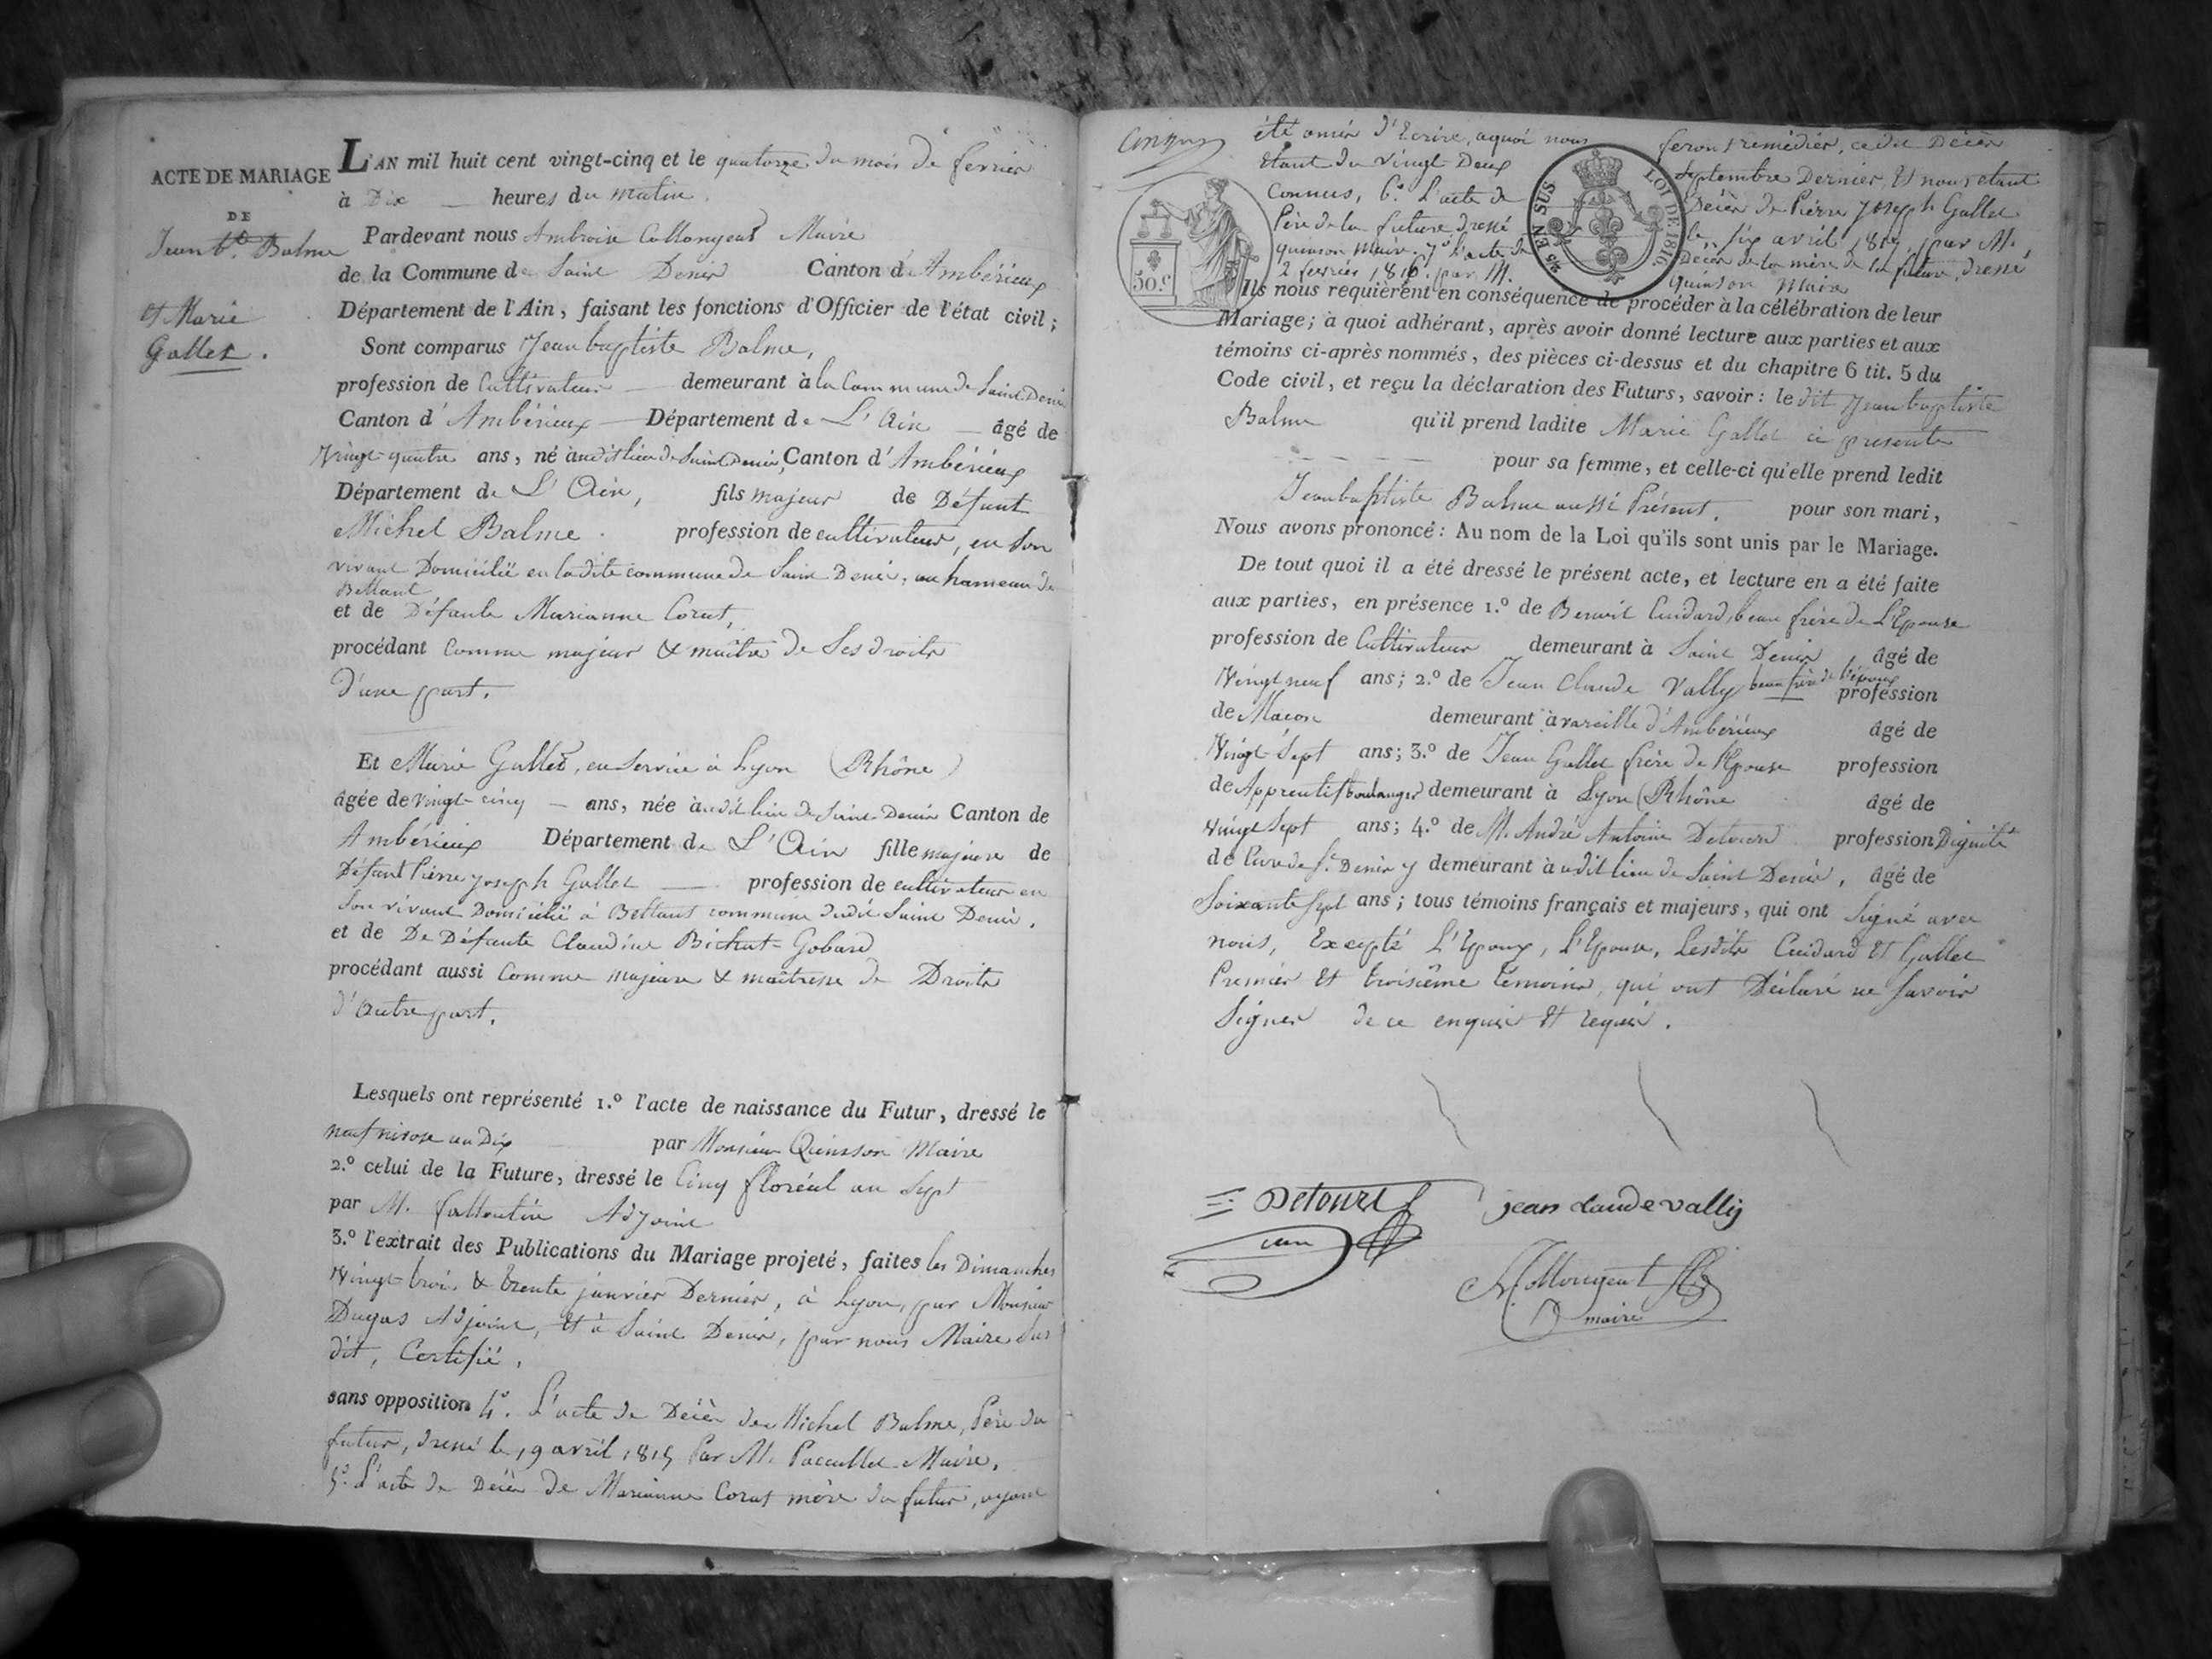 ACTE DE MARIAGE
DE
Jean Bte. Balme
et Marie
Gallet.
L'AN mil huit cent vingt-cinq et le quatorze du mois de fevrier
à Dix heures du matin.
Pardevant nous Ambroise Collongeat Maire
de la Commune de Saint Denis Canton d'Ambérieux
Département de l'Ain, faisant les fonctions d'Officier de l'état civil;
Sont comparus Jean baptiste Balme,
profession de Cultivateur demeurant à la Commune de Saint Denis
Canton d'Ambérieux Département de L'Ain âgé de
Vingt-quatre ans, né audit lieu de Saint Denis, Canton d'Ambérieux
Département de L'Ain, fils majeur de Défunt
Michel Balme profession de cultivateur, en son
vivant Domicilié en ladite commune de Saint Denis, au hameau de
Bettant
et de Défunte Marianne Corat,
procédant comme majeur & maître de Ses droits
D'une part.
Et Marie Gallet, en Service à Lyon (Rhône)
âgée de vingt-cinq ans, née audit lieu de Saint Denis Canton de
Ambérieux Département de L'Ain fille majeure de
Défunt Pierre joseph Gallet profession de cultivateur en
Son vivant Domicilié à Bettant commune dudit Saint Denis.
et de De Défunte Claudine Bichat-Gobard
procédant aussi Comme majeure & maîtresse de Droits
d'Autre part.
Lesquels ont représenté 1.º l'acte de naissance du Futur, dressé le
neuf nivose an Dix par Monsieur Quinson Maire
2.º celui de la Future, dressé le Cinq floréal an Sept
par M. Adjoint
3.º l'extrait des Publications du Mariage projeté, faites les Dimanches
Vingt-trois & trente janvier Dernier, à Lyon, par Monsieur
Dugas Adjoint, Et à Saint Denis, par nous Maire Sus
dit, Certifié,
sans opposition 4º. L'acte de Décès de Michel Balme, Père du
futur, dressé le 19 avril 1815 Par M. Maire.
5º. L'acte de Décès de Marianne Corat mère du futur, ayant
été omis d'Ecrire, aquoi nous ferons remédier, cedit Décès
étant du vingt-Deux Septembre Dernier, Et nous étant
Connus, 6.º L'acte de Décès de Pierre Joseph Gallet
Père de la future, dressé le six avril 1814, par M.
quinson Maire. 7º l'acte de Décès de la mère de la future, dressé
2 fevrier 1816. par M. Quinson Maire
50.c
25 EN SUS
LOI DE 1816.
Ils nous requièrent en conséquence de procéder à la célébration de leur
Mariage; à quoi adhérant, après avoir donné lecture aux parties et aux
témoins ci-après nommés, des pièces ci-dessus et du chapitre 6 tit. 5 du
Code civil, et reçu la déclaration des Futurs, savoir: le dit Jean baptiste
Balme qu'il prend ladite Marie Gallet ci presente
pour sa femme, et celle-ci qu'elle prend ledit
Jean baptiste Balme aussi Présent. pour son mari,
Nous avons prononcé: Au nom de la Loi qu'ils sont unis par le Mariage.
De tout quoi il a été dressé le présent acte, et lecture en a été faite
aux parties, en présence 1.º de Benoit Cuidard, beau frère de L'Epouse
profession de Cultivateur demeurant à Saint Denis âgé de
Vingt neuf ans; 2.º de Jean Claude Vally beau frère de l'époux profession
de Macon demeurant à vareille d'Ambérieux âgé de
Vingt-Sept ans; 3.º de Jean Gallet frère de l'Epouse profession
de Apprentif boulanger demeurant à Lyon (Rhône âgé de
Vingt Sept ans; 4.º de M. André Antoine Detours profession Dignité
de Cure de St. Denis y demeurant à udit lieu de Saint Denis, âgé de
Soixante Sept ans; tous témoins français et majeurs, qui ont Signé avec
nous, Excepté L'Epoux, l'Epouse, Lesdits Cuidard Et Gallet
Premier Et troisième témoins, qui ont Déclaré ne Savoir
Signer de ce enquis Et requis.
Detours
jean claude vally
Collongeat
maire